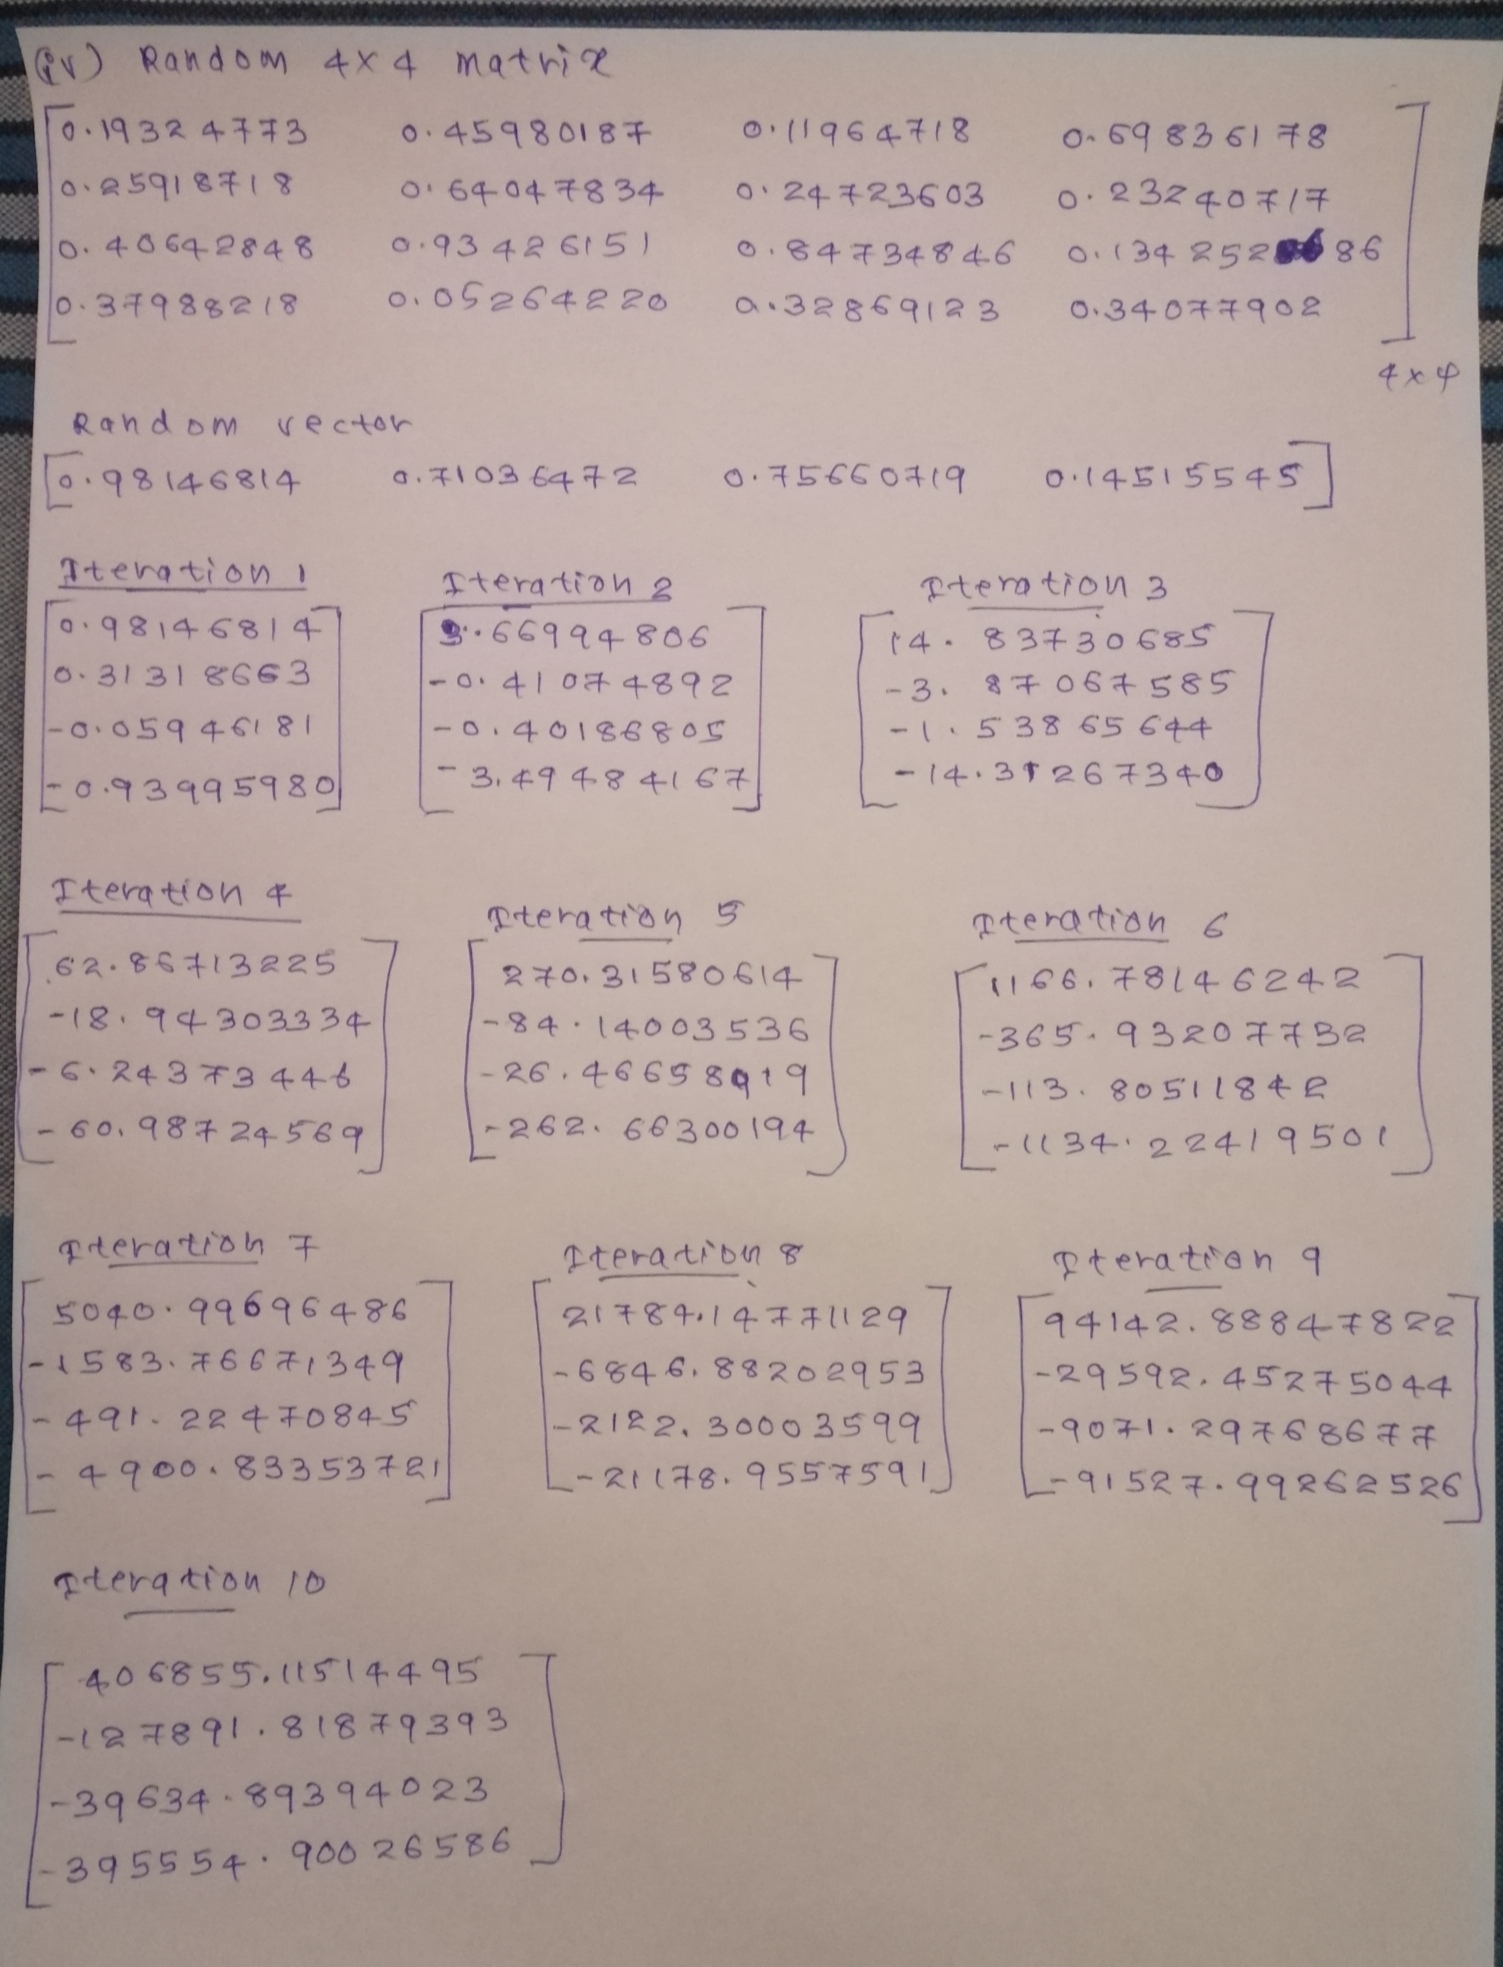 (iv) Random 4x4 matrix
0.19324773 0.45980187 0.11964718 0.69836178
0.25918718 0.64047834 0.24723603 0.23240717
0.40642848 0.93426151 0.84734846 0.13425286
0.37988218 0.05264220 0.32869123 0.34077902
4x4
Random vector
0.98146814 0.71036472 0.75660719 0.14515545
Iteration 1
0.98146814
0.31318663
-0.05946181
-0.93995980
Iteration 2
3.66994806
-0.41074892
-0.40186805
-3.49484167
Iteration 3
14.83730685
-3.87067585
-1.53865644
-14.31267340
Iteration 4
62.86713225
-18.94303334
-6.24373446
-60.98724569
Iteration 5
270.31580614
-84.14003536
-26.46658919
-262.66300194
Iteration 6
1166.78146242
-365.93207732
-113.80511842
-1134.22419501
Iteration 7
5040.99696486
-1583.76671349
-491.22470845
-4900.83353721
Iteration 8
21784.14771129
-6846.88202953
-2122.30003599
-21178.9557591
Iteration 9
94142.88847822
-29592.45275044
-9071.29768677
-91527.99262526
Iteration 10
406855.11514495
-127891.81879393
-39634.89394023
-395554.90026586